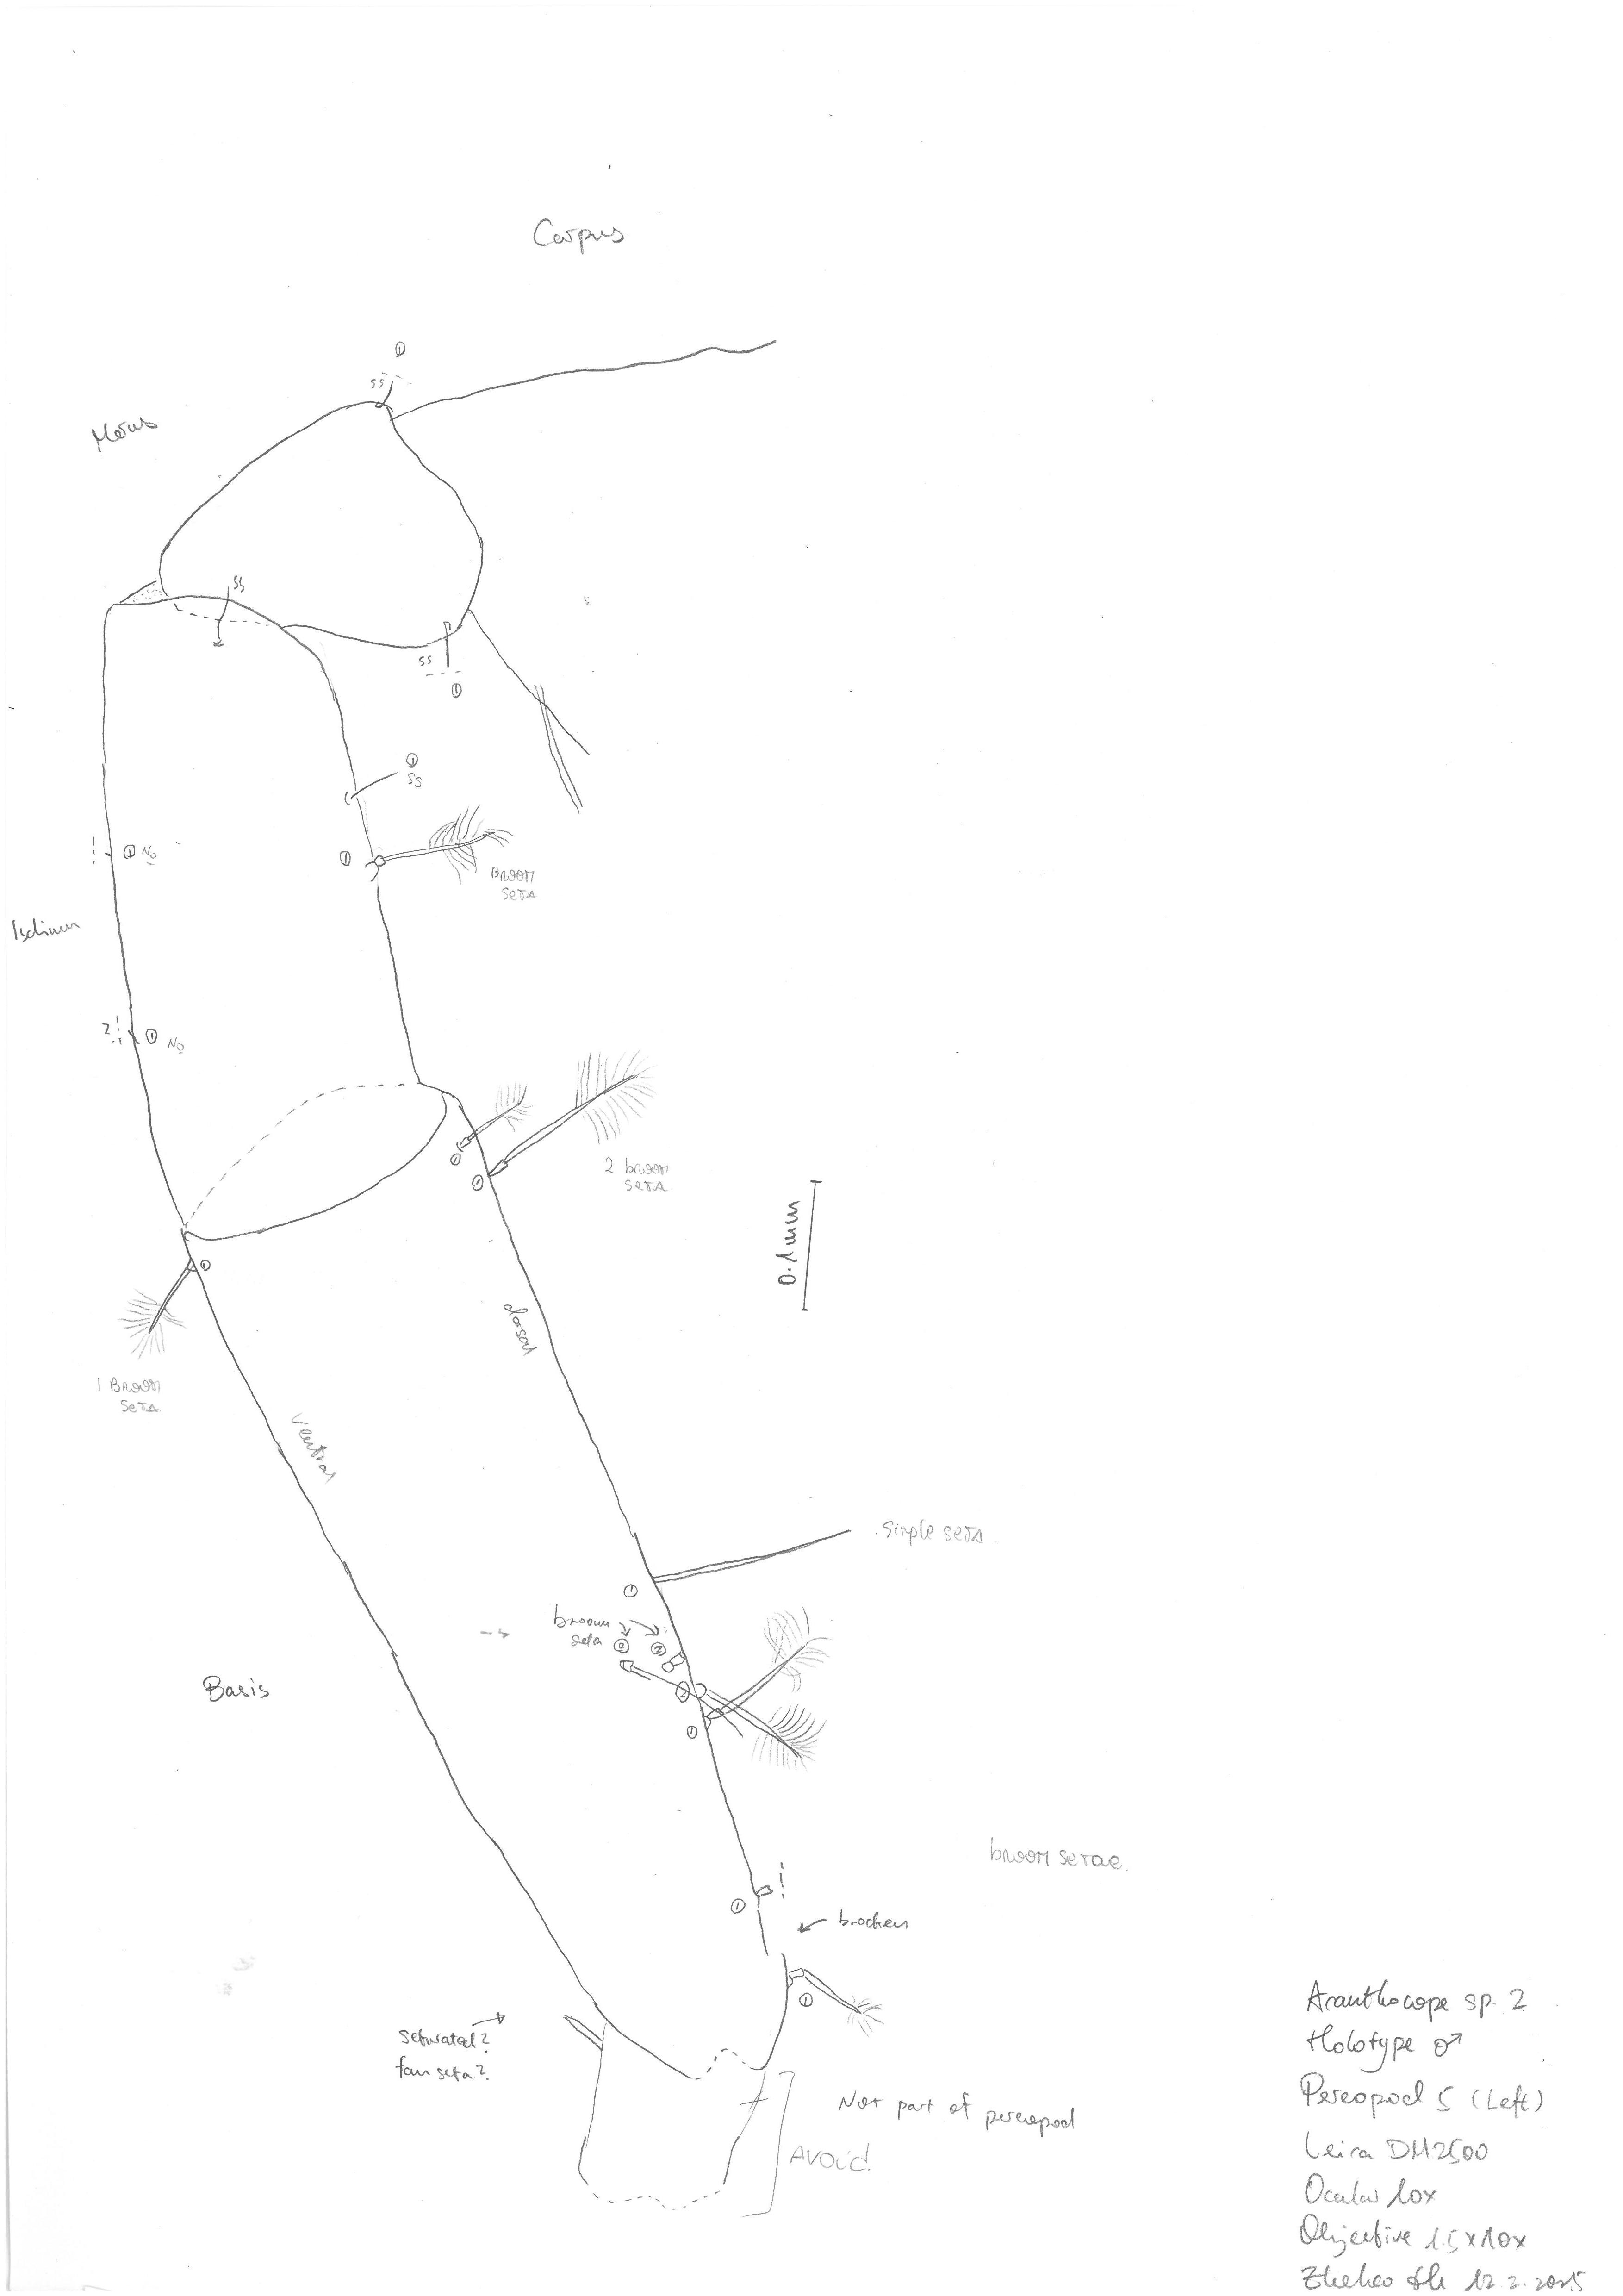 Carpus
①
ss
Merus
ss
ss
①
①
ss
① No
①
Broom
seta
Ischium
2
① No
①
①
2 broom
seta
0.1 mm
①
dorsal
1 Broom
seta
ventral
simple seta.
①
broom
seta
②
②
②
①
Basis
broom setae.
①
brochen
①
fan seta?
Not part of pereopod
AVOID.
Acanthocope sp. 2
Holotype ♂
Pereopod 5 (Left)
Leica DM2500
Ocular 10x
Objective 1.5x10x
12.2.2025